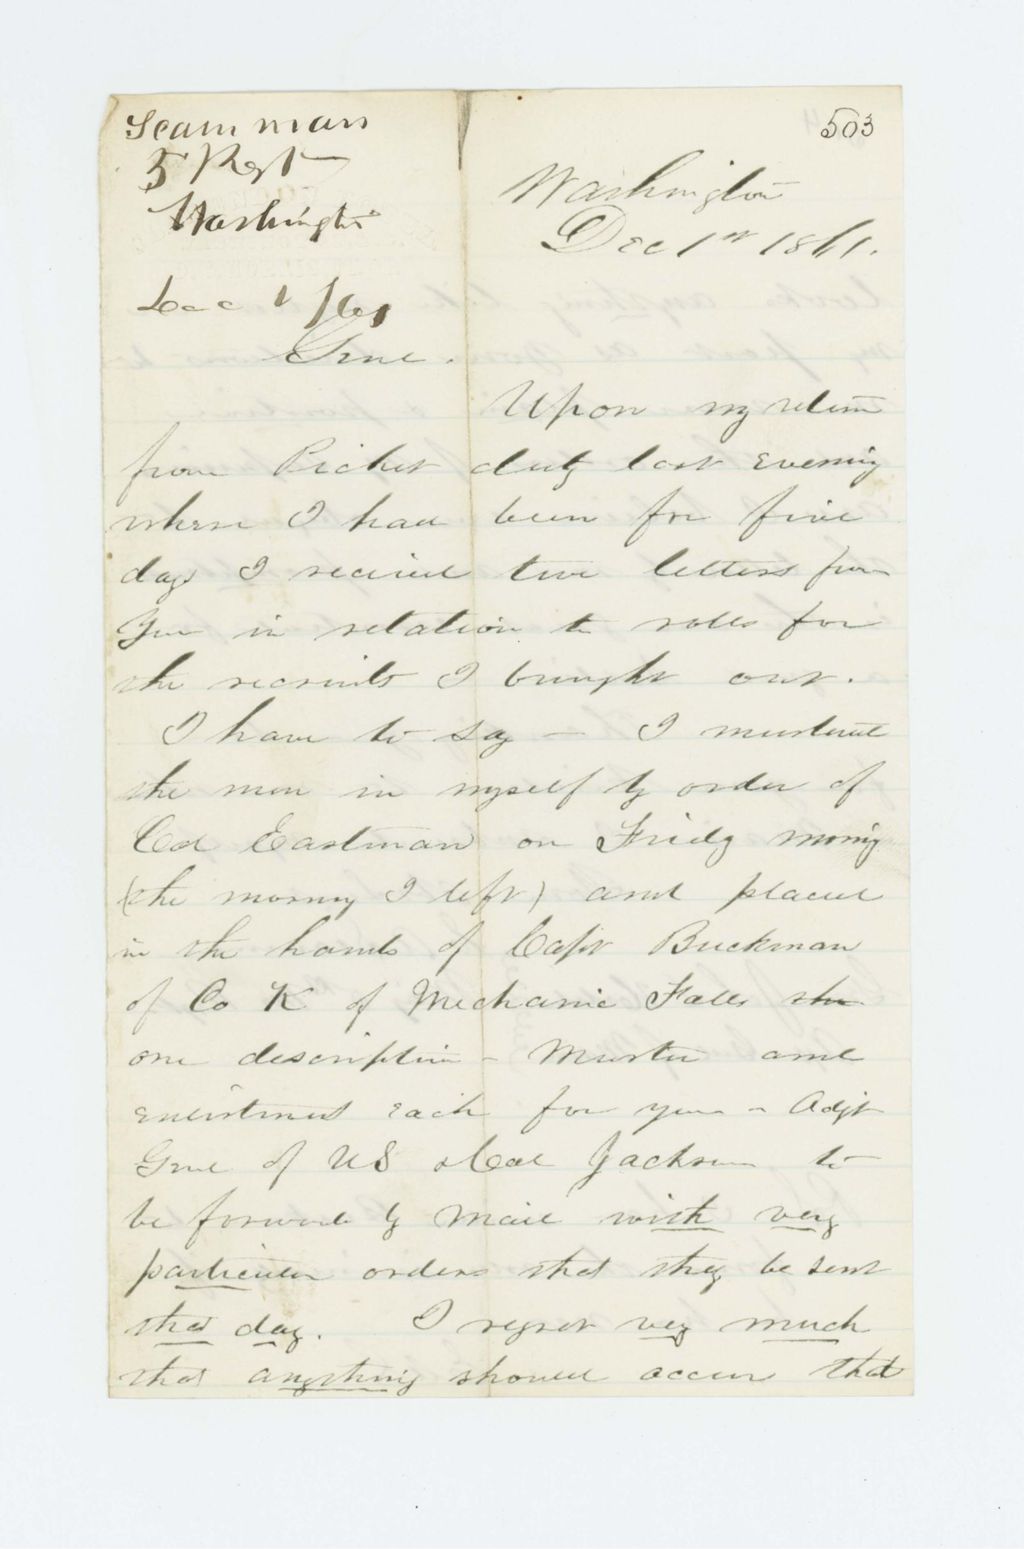 Scammon
5 Regt
Washington
Dec 1 /61
503
Washington
Dec 1st 1861.
Genl.
Upon my return
from Picket duty last evening
where I had been for five
days I received two letters from
You in relation to rolls for
the recruits I brought out.
I have to say — I mustered
the men in myself by order of
Col Eastman on Friday morning
(the morning I left) and placed
in the hands of Capt Buckman
of Co K of Mechanic Falls the
one description - Muster and
enlistment each for you - Adjt
Genl of US & Col Jackson to
be forward by Mail with very
particular orders that they be sent
that day. I regret very much
that anything should occur that